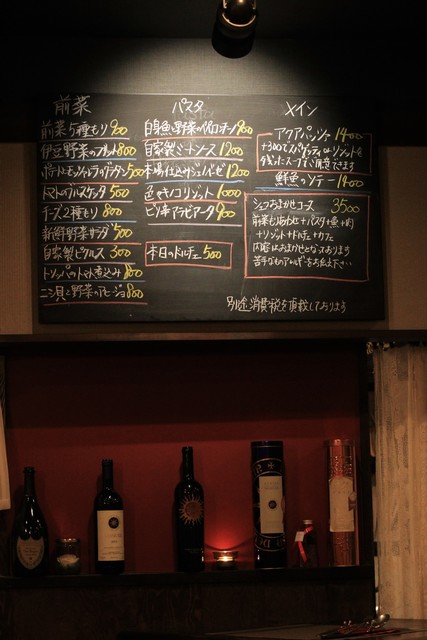 前菜
前菜5種もり 900
伊豆野菜のフリット 800
500
トマトのブルスケッタ 500
チーズ2種もり 800
新鮮野菜サラダ 500
自家製ピクルス 300
トリッパのトマト煮込み 800
ニシ貝と野菜のアヒージョ 800
パスタ
白身魚と野菜のペペロンチーノ 900
自家製ミートソース 1200
本場仕込みジェノベーゼ 1200
キノコリゾット 1000
ピリ辛アラビアータ 900
本日のドルチェ 500
メイン
アクアパッツァ 1400
+300でスパゲッティorリゾットを
残ったスープでご用意できます
鮮魚のソテー 1400
シェフおまかせコース 3500
前菜もりあわせ+パスタ+魚+肉
+リゾット+ドルチェ+カフェ
内容はおまかせとなっております
苦手なものアレルギーお伝え下さい
別途消費税を頂戴しております